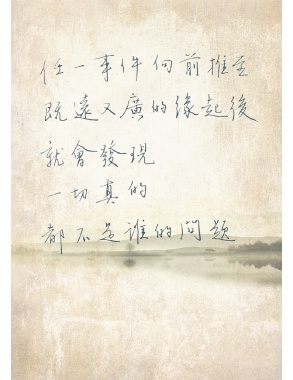 任一事件向前推至
既遠又廣的緣起後
就會發現
一切真的
都不是誰的問題